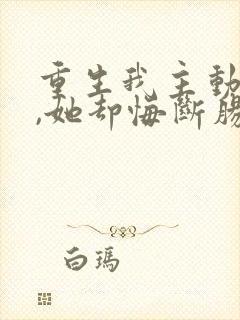 重生我主動
,她却悔斷腸
白瑪